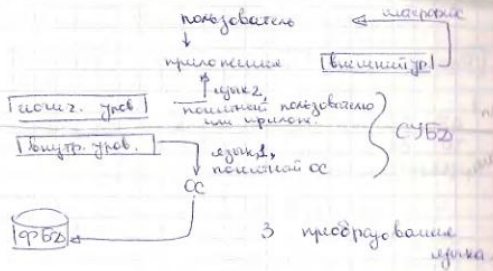 пользователь
интерфейс
приложения
внешний ур
язык 2,
понятный пользователю
или прилож.
СУБД
внутр. уров.
язык 1,
понятной ОС
ОС
ФБД
3 преобразования
языка